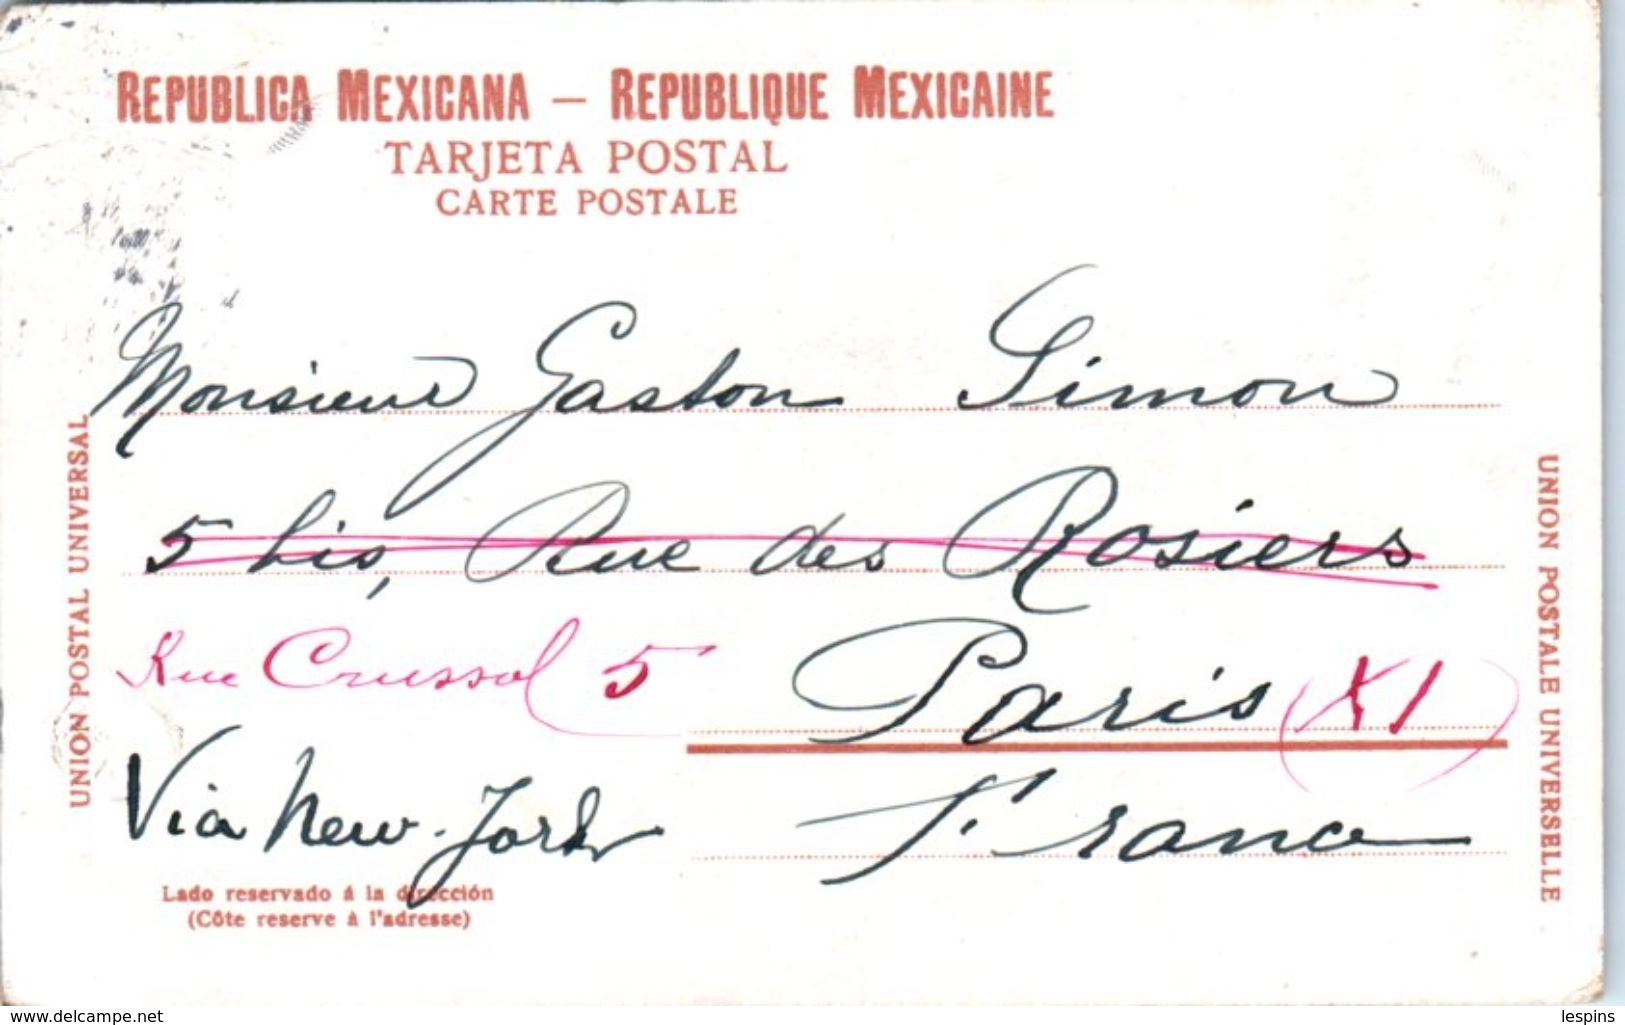 REPUBLICA MEXICANA — REPUBLIQUE MEXICAINE
TARJETA POSTAL
CARTE POSTALE
Monsieur Gaston Simon
5 bis, Rue des Rosiers
Rue Crussol 5 Paris (XI)
Via New-York France
Lado reservado á la dirección
(Côte reserve à l'adresse)
UNION POSTAL UNIVERSAL
UNION POSTALE UNIVERSELLE
www.delcampe.net
lespins